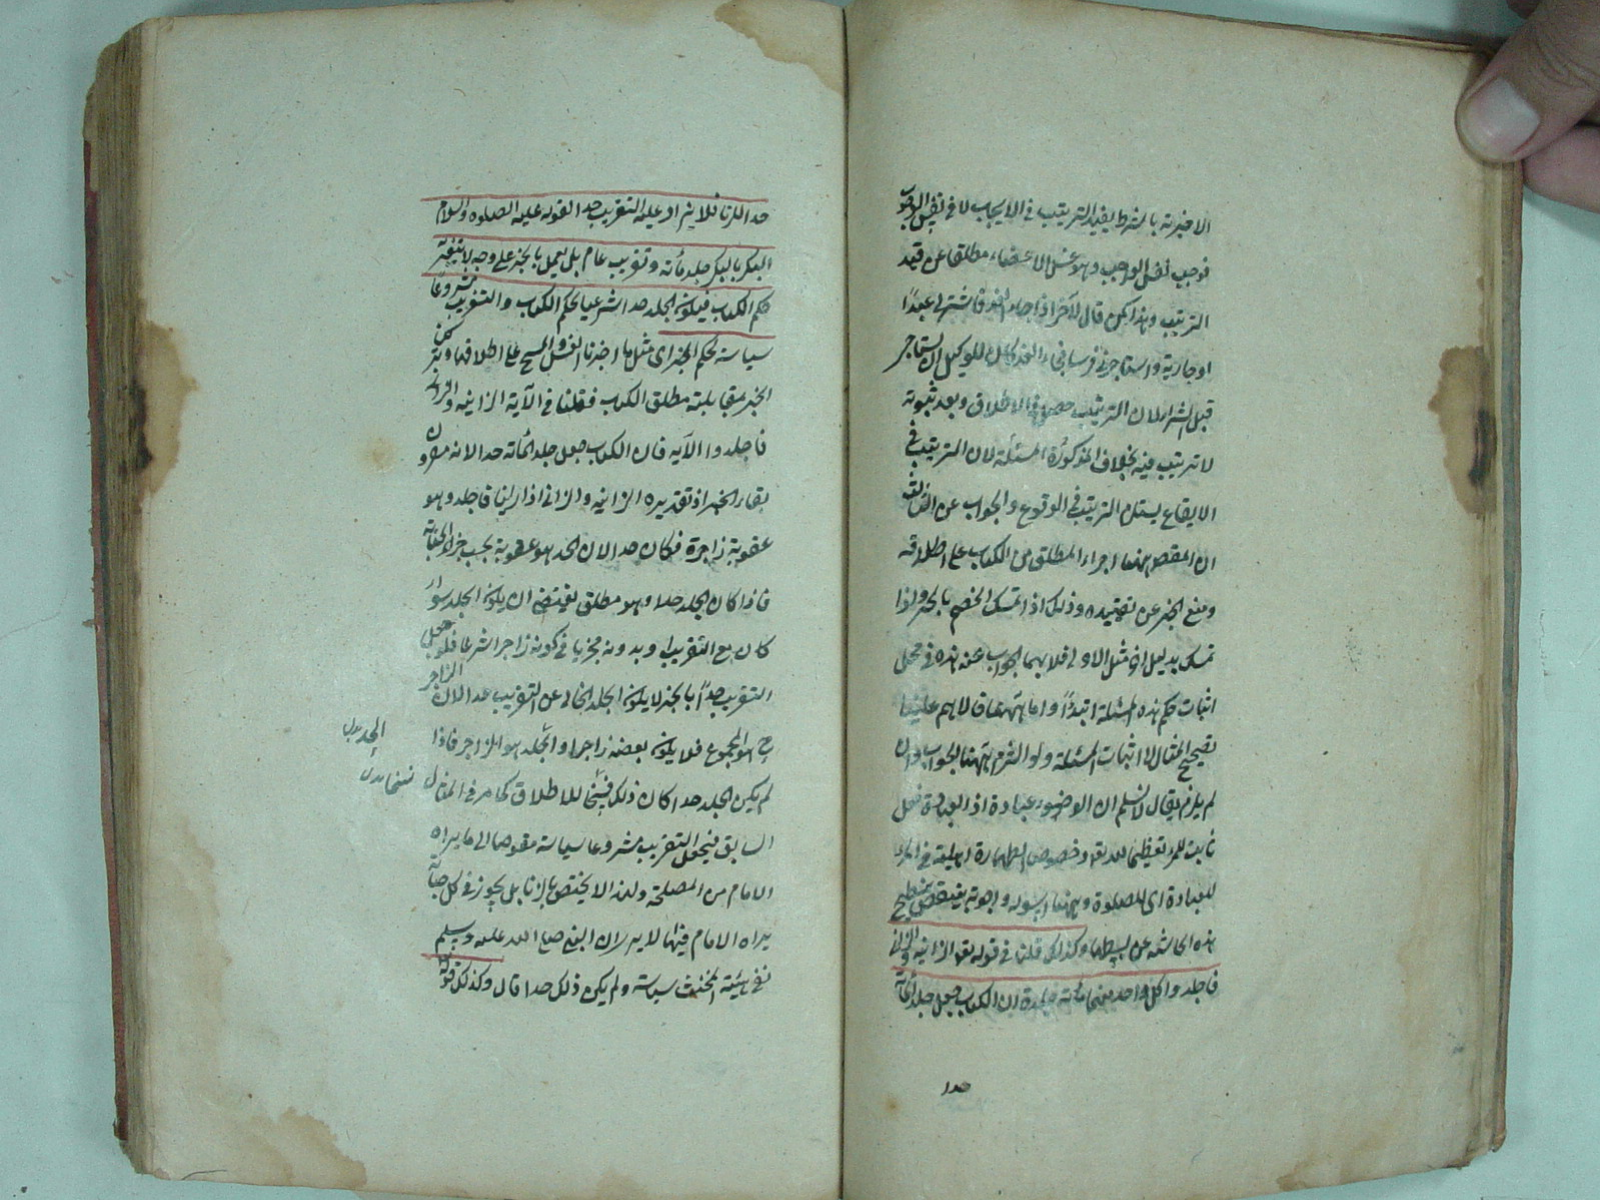 الاخيرته بالشرط يفيد الترتيب في الايجاب لا في نفس الوجوب
فوجب نفس الواجب وهو غسل الاعضاء مطلقا عن قيد
الترتيب وهذا كمن قال لآخر اذا جاء الغد فاشتر لي عبدًا
او جارية واستاجر لي فرسا فجاء الغد كان للوكيل ان يستاجر
قبل الشراء لان الترتيب حصل في الاطلاق وبعد ثبوته
لا ترتيب فيه بخلاف المذكورة المسئلة لان الترتيب في
الايقاع يستلزم الترتيب في الوقوع والجواب عن الثالث
ان المقصود ههنا اجراء المطلق من الكتاب على اطلاقه
ومنع الخبر عن تقييده وذلك اذا تمسك الخصم بالخبر واذا
تمسك بدليل اخر مثل الاولى فلا يهمنا الجواب عنه هذه في محل
اثبات حكم هذه المسئلة ابتدًا واما ههنا فلا يهم علينا
تصحيح المثال لا اثبات المسئلة ولو التزم ههنا الجواب وان
لم يلزم يقال لا نسلم ان الوضوء عبادة اذ العبادة فعل
ياتيه المرء تعظيما لله تعالى وخصوص الطهارة اهلية في المرء
للعبادة اى الصلوة وههنا اسوله واجوبه يقتضى تنقيح
هذه الحاشية عن بسطها وكذلك قلنا في قوله تعالى الزانية والزانى
فاجلدوا كل واحد منهما مائة جلدة ان الكتاب جعل جلد المائة
حدا
حدا للزنا فلا يزاد عليه التغريب حدا لقوله عليه الصلوه والسلام
البكر بالبكر جلد مائة وتغريب عام بل يعمل بالخبر على وجه لا يتغير به
حكم الكتاب فيكون الجلد حدا شرعيا بحكم الكتاب والتغريب مشروعًا
سياسة بحكم الخبر اى مثل ما اخبرنا الغسل والمسح على اطلاقهما وتركنا
الخبر بمقابلته مطلق الكتاب فقلنا في الآية الزانيه والزانى
فاجلدوا الآيه فان الكتاب جعل جلد المائة حدا لانه مقرون
بفاء الجزاء اذ تقديره الزانيه والزانى اذا زنيا فاجلدوهما وهو
عقوبة زاجرة فكان حدا لان الحد هو عقوبة يجب جزاء للجناية
فاذا كان الجلد حدا وهو مطلق يقتضى ان يكون الجلد سواء
كان مع التغريب او بدونه مجزيا في كونه زاجرا شرعا فلو جعل
التغريب حدًا بالخبر لا يكون الجلد الخالى عن التغريب حدا لان الزاجر
ح هو المجموع فلا يكون بعضه زاجرا والجلد هو الزاجر فاذا
لم يكن الجلد حدا كان ذلك نسخا للاطلاق كما مر في المثال
السابق فيجعل التغريب مشروعا سياسة مفوضا الى ما يراه
الامام من المصلحة ولهذا لا يختص بالزنا بل يجوز في كل جناية
يراه الامام فيها لا يرى ان النبي صلى الله عليه وسلم
نفى هيئة المخنث سياسة ولم يكن ذلك حدا قال وكذلك قوله
الجد بدل
نسخا بدل